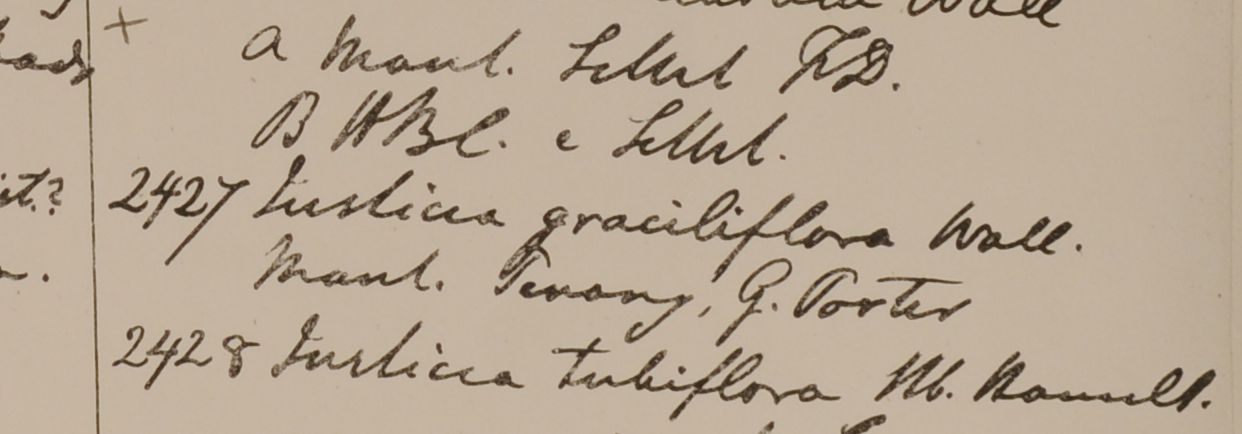 Wall
a Mont. Sillet F.D.
B HBC. e Sillet.
2427 Justicia graciliflora Wall.
Mont. Penang, G. Porter
2428 Justicia tubiflora Hb. Hamilt.